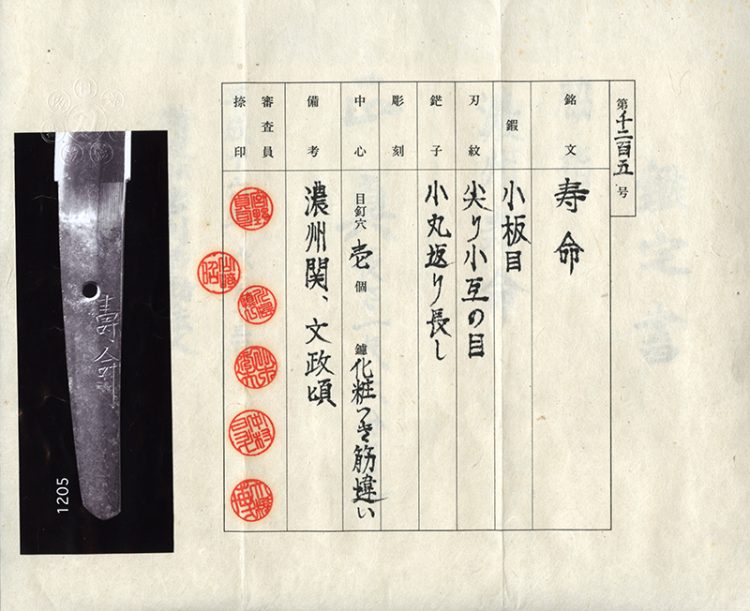 第千二百五号
銘文 寿命
鍜 小板目
刃紋 尖り小互の目
鋩子 小丸返り長し
彫刻
中心 目釘穴 壱 個 鑢 化粧つき筋違い
備考 濃州関、文政頃
審査員捺印
壽命
1205